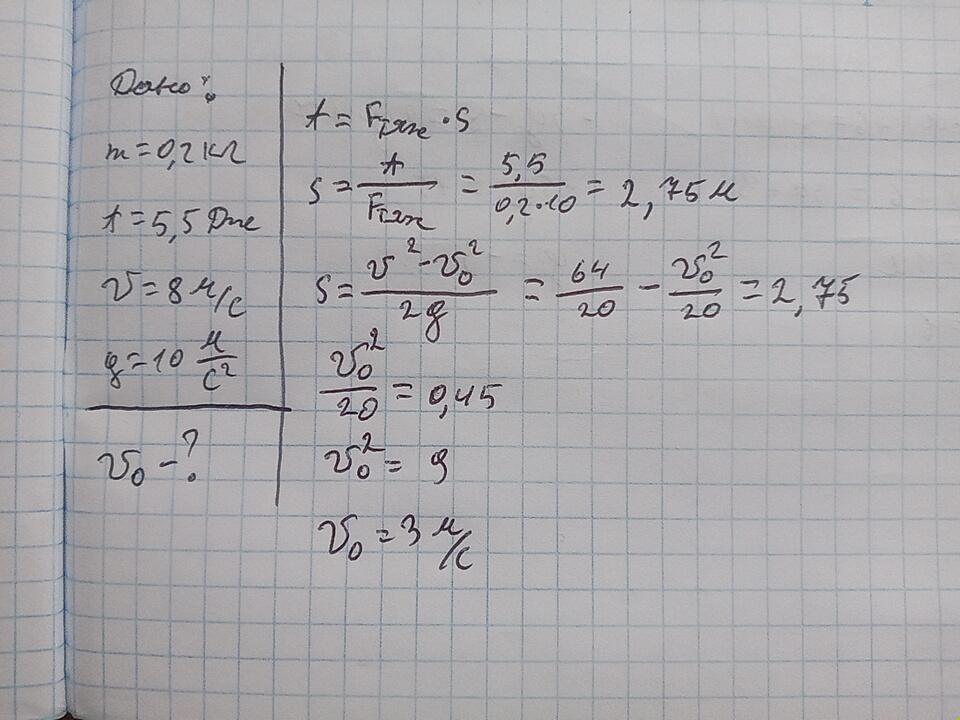 Дано:
m = 0,2 кг
A = 5,5 Дж
v = 8 м/с
g = 10 м/с²
v₀ - ?
A = Fтяж · S
S = A/Fтяж = 5,5/(0,2·10) = 2,75 м
S = (v² - v₀²)/2g = 64/20 - v₀²/20 = 2,75
v₀²/20 = 0,45
v₀² = 9
v₀ = 3 м/с